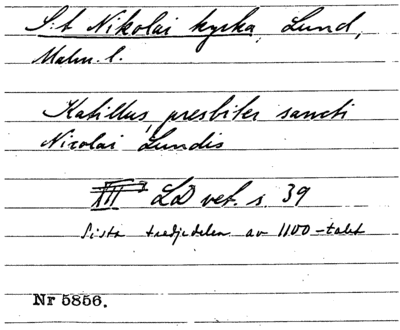 S:t Nikolai kyrka, Lund,
Malm. l.
Katillus, presbiter sancti
Nicolai Lundis
LD vet. s. 39
Sista tredjedelen av 1100-talet
Nr 5856.